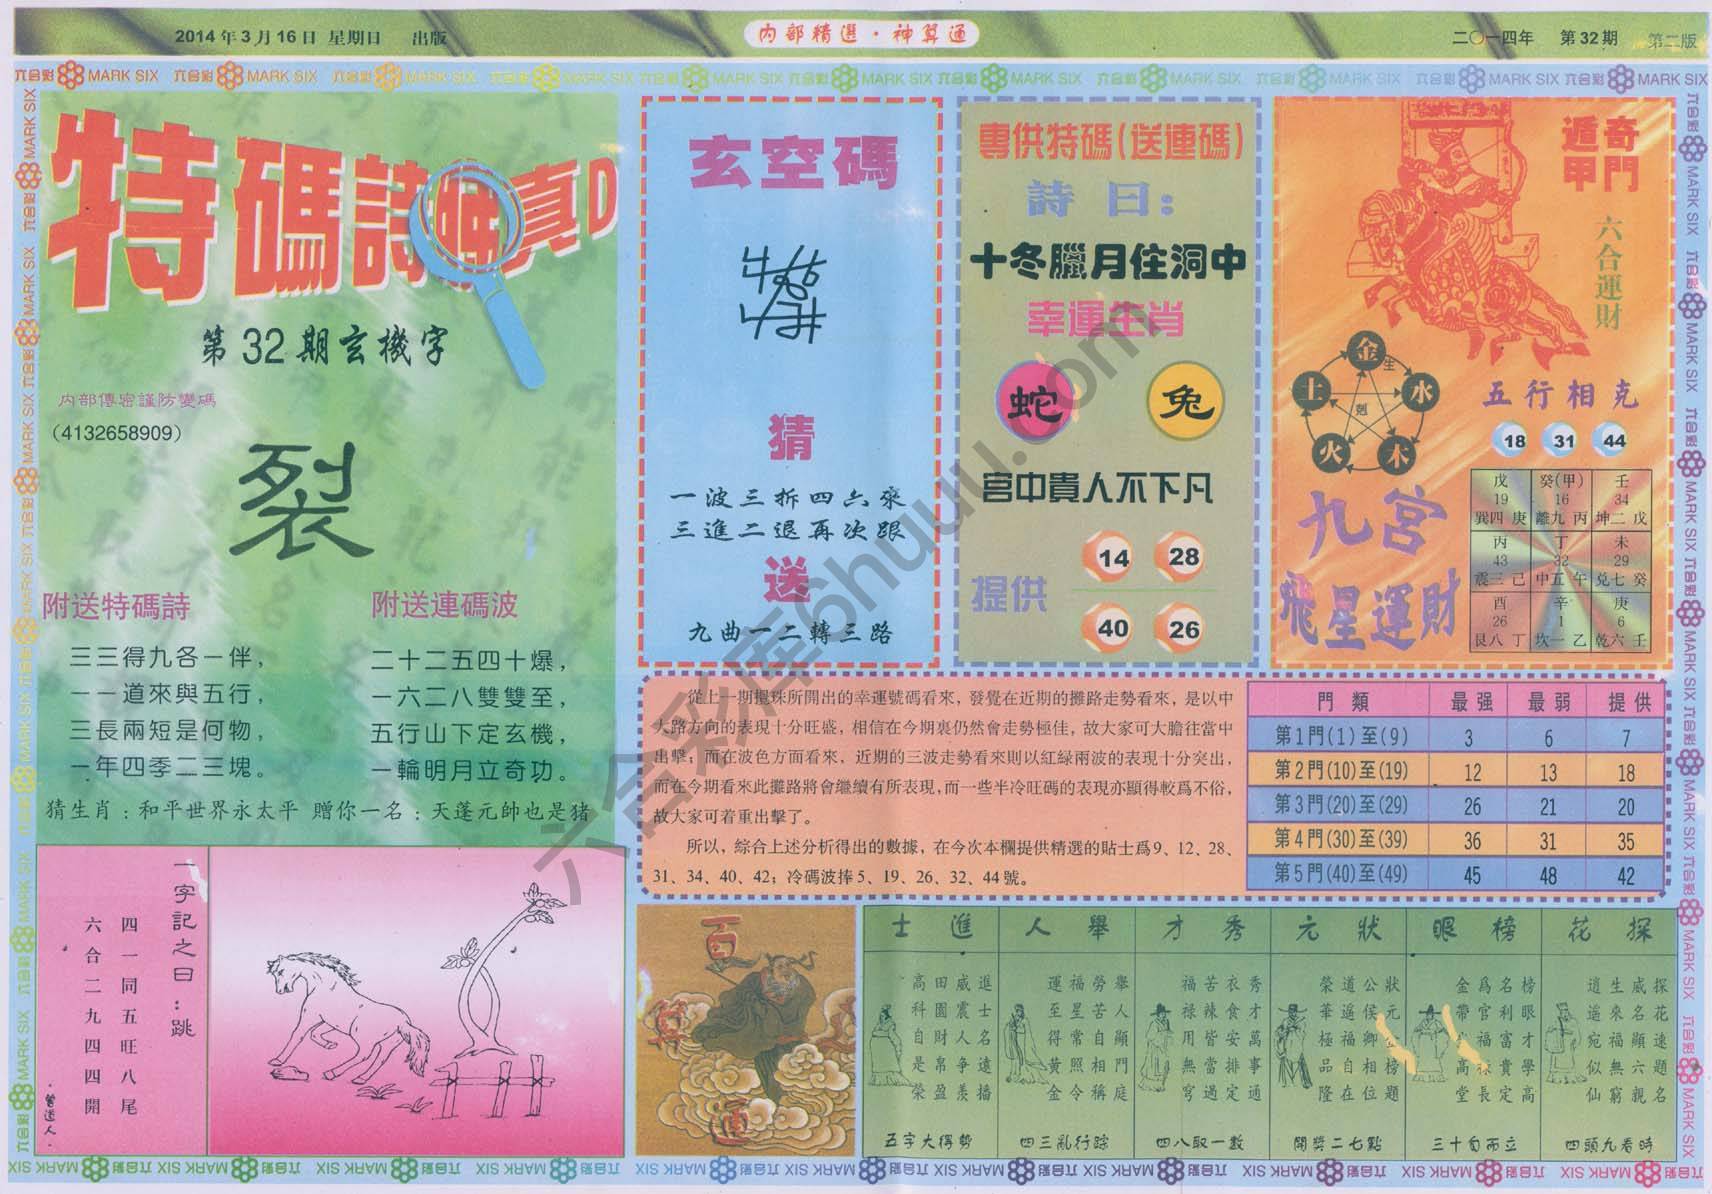 2014年3月16日 星期日 出版
内部精選·神算通
二〇一四年 第32期 第二版
六合彩 MARK SIX
特碼詩 真D
第32期玄機字
内部傳密謹防變碼
（4132658909）
裂
附送特碼詩
三三得九各一伴，
一一道來與五行，
三長兩短是何物，
一年四季二三塊。
附送連碼波
二十二五四十爆，
一六二八雙雙至，
五行山下定玄機，
一輪明月立奇功。
猜生肖：和平世界永太平 贈你一名：天蓬元帥也是豬
一字記之曰：跳
四一同五旺八尾
六合二九四四開
曾道人
玄空碼
猜
一波三拆四六來
三進二退再次跟
送
九曲一二轉三路
專供特碼(送連碼)
詩曰：
十冬臘月住洞中
幸運生肖
蛇 兔
宫中貴人不下凡
提供
14 28
40 26
奇門遁甲
六合運財
金 生 水 木 火 土 剋
五行相克
18 31 44
九宫
飛星運財
戊 癸(甲) 壬
19 16 34
巽四 庚 離九 丙 坤二 戊
丙 丁 未
43 32 29
震三 己 中五 午 兑七 癸
酉 辛 庚
26 1 6
艮八 丁 坎一 乙 乾六 壬
從上一期攪珠所開出的幸運號碼看來，發覺在近期的攤路走勢看來，是以中
大路方向的表現十分旺盛，相信在今期裏仍然會走勢極佳，故大家可大膽往當中
出擊；而在波色方面看來，近期的三波走勢看來則以紅緑兩波的表現十分突出，
而在今期看來此攤路將會繼續有所表現，而一些半冷旺碼的表現亦顯得較爲不俗，
故大家可着重出擊了。
所以，綜合上述分析得出的數據，在今次本欄提供精選的貼士爲9、12、28、
31、34、40、42；冷碼波捧5、19、26、32、44號。
門類 最强 最弱 提供
第1門(1)至(9) 3 6 7
第2門(10)至(19) 12 13 18
第3門(20)至(29) 26 21 20
第4門(30)至(39) 36 31 35
第5門(40)至(49) 45 48 42
百算通
進士
進士名遠播
威震人争羨
田園財帛盈
高科自是榮
五字大得勢
舉人
舉人顯門庭
勞苦自相稱
福星常照令
運至得黄金
四三亂行踪
秀才
秀才萬事通
衣食安排定
苦辣皆當過
福禄用無窮
四八取一數
狀元
狀元金榜題
公侯卿相位
道遥福自在
榮華極品隆
開獎二七點
榜眼
榜眼才學高
名利富貴定
爲官福禄長
金帶高堂
三十旬而立
探花
探花遠題名
威名顯六親
生來福無窮
逍遥宛似仙
四頭九看時
六合彩库6huuu.com